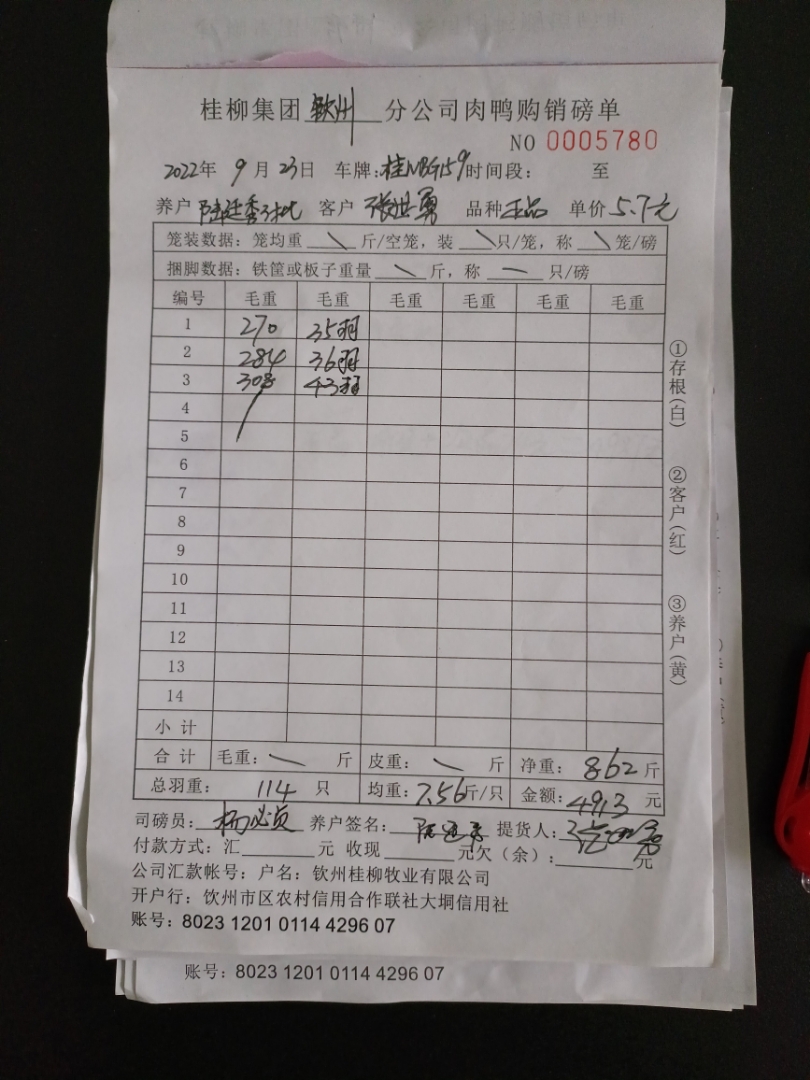 桂柳集团钦州分公司肉鸭购销磅单
NO 0005780
2022年 9月23日 车牌：桂NBG159 时间段： 至
养户 客户 张世勇 品种 王品 单价 5.7元
笼装数据：笼均重 \ 斤/空笼，装 \ 只/笼，称 \ 笼/磅
捆脚数据：铁筐或板子重量 \ 斤，称 — 只/磅
编号 毛重 毛重 毛重 毛重 毛重 毛重
1 270 35羽
2 284 36羽
3 308 43羽
4
5
6
7
8
9
10
11
12
13
14
小计
合计 毛重：\ 斤 皮重：\ 斤 净重：862斤
总羽重： 114 只 均重：7.56斤/只 金额：4913 元
司磅员： 养户签名： 提货人：
付款方式：汇 元 收现 元欠（余）： 元
公司汇款帐号：户名：钦州桂柳牧业有限公司
开户行：钦州市区农村信用合作联社大垌信用社
账号：8023 1201 0114 4296 07
账号：8023 1201 0114 4296 07
①存根（白）
②客户（红）
③养户（黄）